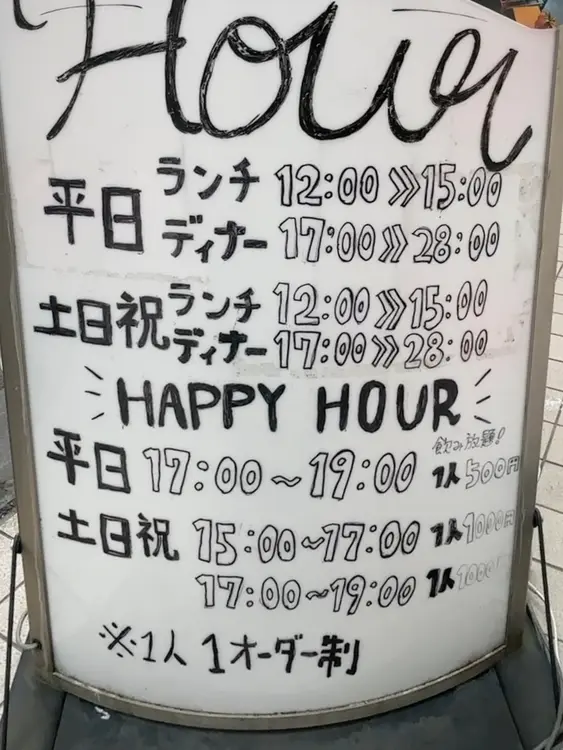 Hour
平日 ランチ 12:00 》 15:00
ディナー 17:00 》 28:00
土日祝 ランチ 12:00 》 15:00
ディナー 17:00 》 28:00
HAPPY HOUR
飲み放題!
平日 17:00～19:00 1人500円
土日祝 15:00～17:00 1人1000円
17:00～19:00 1人1000
※1人 1オーダー制